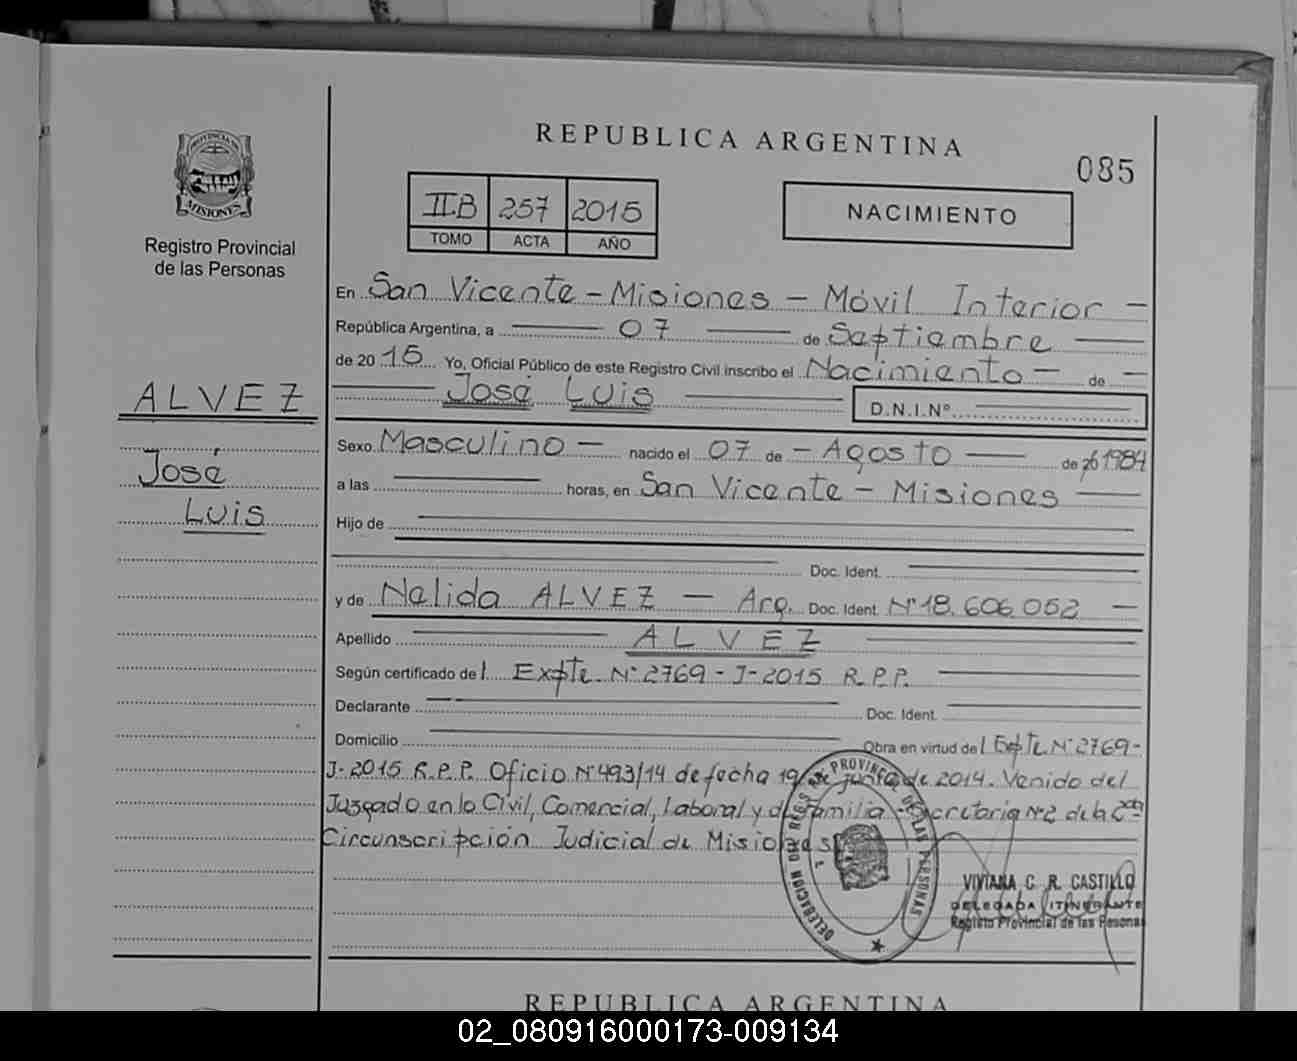 REPUBLICA ARGENTINA
085
PROVINCIA DE
MISIONES
Registro Provincial
de las Personas
II.B 257 2015
TOMO ACTA AÑO
NACIMIENTO
En San Vicente - Misiones - Móvil Interior -
República Argentina, a 07 de Septiembre
de 2015 Yo, Oficial Público de este Registro Civil inscribo el Nacimiento - de -
José Luis D.N.I.Nº
ALVEZ
José
Luis
Sexo Masculino - nacido el 07 de - Agosto de 1984
a las horas, en San Vicente - Misiones
Hijo de
Doc. Ident.
y de Nelida ALVEZ - Arg. Doc. Ident. Nº 18.606.052 -
Apellido ALVEZ
Según certificado del Expte. Nº 2769 - J - 2015 R.P.P.
Declarante Doc. Ident.
Domicilio Obra en virtud del Expte. Nº 2769 -
J - 2015 R.P.P. Oficio Nº 493/14 de fecha 19 de junio de 2014. Venido del
Juzgado en lo Civil, Comercial, Laboral y de Familia Secretaria Nº 2 de la
Circunscripción Judicial de Misiones
DELEGACION DEL REG. PROVINCIAL DE LAS PERSONAS
VIVIANA C. R. CASTILLO
DELEGADA ITINERANTE
Registro Provincial de las Personas
REPUBLICA ARGENTINA
02_080916000173-009134